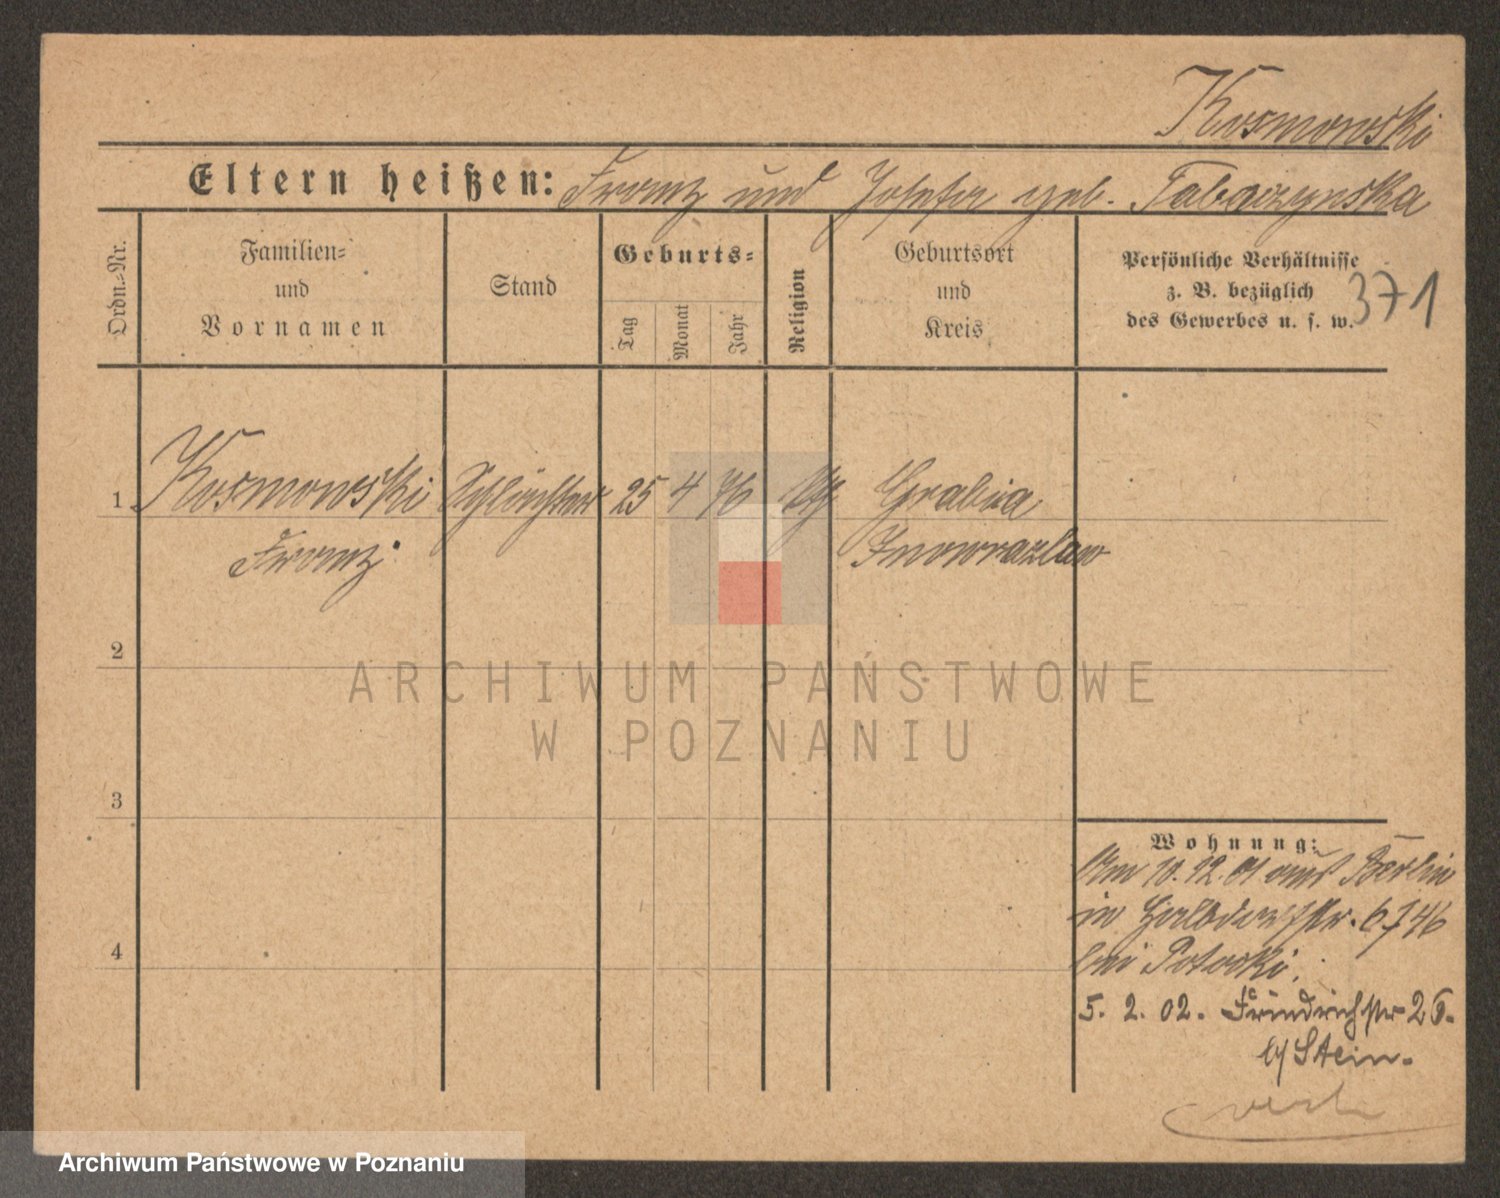 Kosmowski
Eltern heißen: Franz und Josefa geb. Tabaczynska
Ordn.-Nr.
Familien-
und
Vornamen
Stand
Geburts-
Tag
Monat
Jahr
Religion
Geburtsort
und
Kreis
Persönliche Verhältnisse
z. B. bezüglich
des Gewerbes u. s. w.
371
1 Kosmowski Schlächter 25 4 76 Grabia
Franz Inowrazlaw
2
3
4
Wohnung:
Am 10.12.01 aus Berlin
in
bei Potocki.
5. 2. 02. Friedrichstr 26.
b/ Stein.
ARCHIWUM PAŃSTWOWE
W POZNANIU
Archiwum Państwowe w Poznaniu